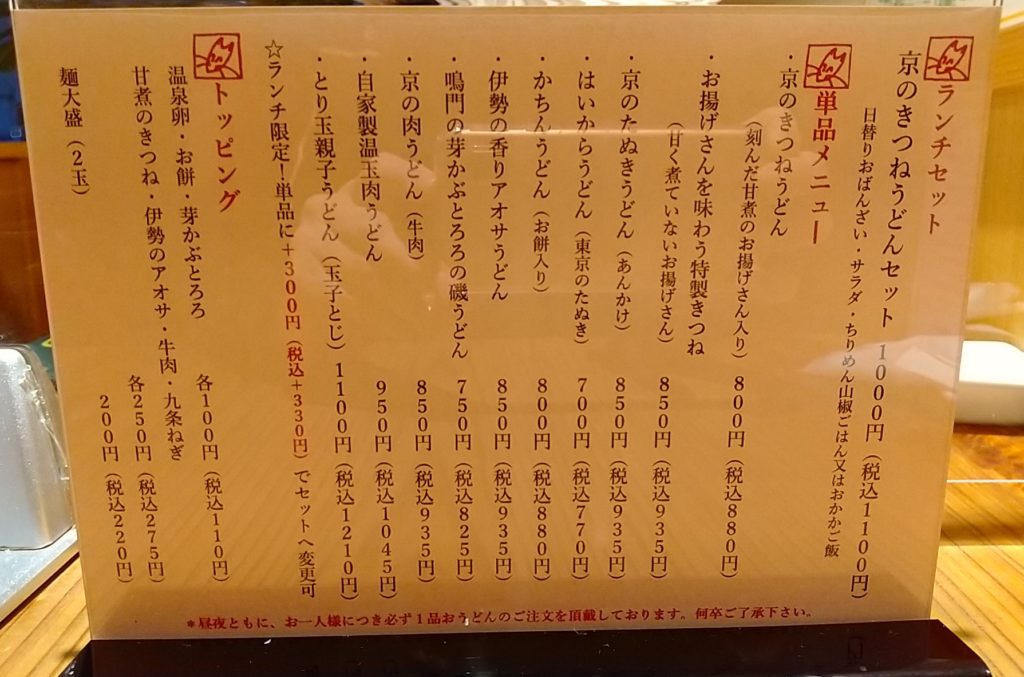 ランチセット
京のきつねうどんセット 1000円(税込1100円)
日替りおばんざい・サラダ・ちりめん山椒ごはん又はおかかご飯
単品メニュー
・京のきつねうどん
(刻んだ甘煮のお揚げさん入り) 800円(税込880円)
・お揚げさんを味わう特製きつね
(甘く煮ていないお揚げさん) 850円(税込935円)
・京のたぬきうどん(あんかけ) 850円(税込935円)
・はいからうどん(東京のたぬき) 700円(税込770円)
・かちんうどん(お餅入り) 800円(税込880円)
・伊勢の香りアオサうどん 850円(税込935円)
・鳴門の芽かぶとろろの磯うどん 750円(税込825円)
・京の肉うどん(牛肉) 850円(税込935円)
・自家製温玉肉うどん 950円(税込1045円)
・とり玉親子うどん(玉子とじ) 1100円(税込1210円)
☆ランチ限定!単品に+300円(税込+330円)でセットへ変更可
トッピング
温泉卵・お餅・芽かぶとろろ 各100円(税込110円)
甘煮のきつね・伊勢のアオサ・牛肉・九条ねぎ 各250円(税込275円)
麺大盛(2玉) 200円(税込220円)
*昼夜ともに、お一人様につき必ず1品おうどんのご注文を頂戴しております。何卒ご了承下さい。